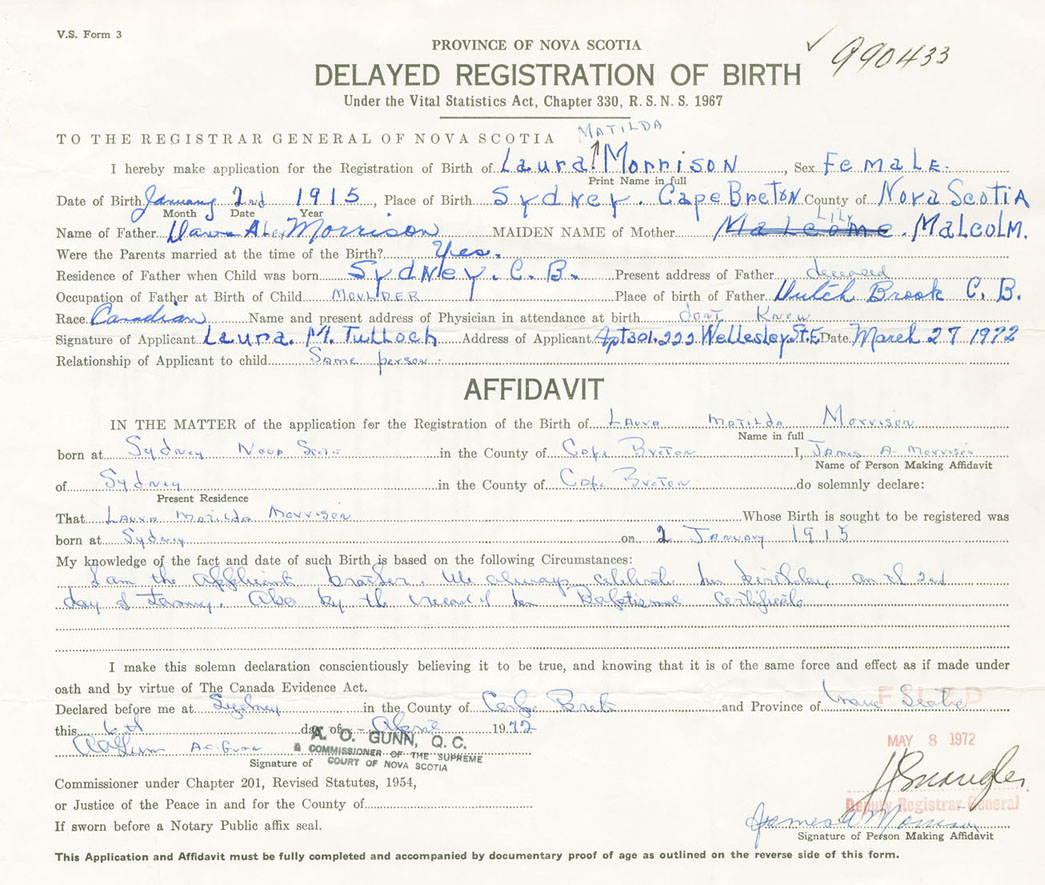 V.S. Form 3
PROVINCE OF NOVA SCOTIA
990433
DELAYED REGISTRATION OF BIRTH
Under the Vital Statistics Act, Chapter 330, R. S. N. S. 1967
TO THE REGISTRAR GENERAL OF NOVA SCOTIA
MATILDA
I hereby make application for the Registration of Birth of Laura Morrison, Sex FEMALE.
Print Name in full
Date of Birth January 2nd 1915, Place of Birth Sydney. Cape Breton County of Nova Scotia
Month Date Year
Lily
Name of Father Alex Morrison MAIDEN NAME of Mother Malcome. Malcolm.
Were the Parents married at the time of the Birth? Yes.
Residence of Father when Child was born Sydney. C. B. Present address of Father deceased
Occupation of Father at Birth of Child MOULDER Place of birth of Father Dutch Brook C. B.
Race Canadian Name and present address of Physician in attendance at birth dont Know
Signature of Applicant Laura. M. Tulloch Address of Applicant Apt 301. 222 Wellesley St. E Date March 27 1972
Relationship of Applicant to child Same person.
AFFIDAVIT
IN THE MATTER of the application for the Registration of the Birth of Laura Matilda Morrison
Name in full
born at Sydney Nova Scotia in the County of Cape Breton I, James A. Morrison
Name of Person Making Affidavit
of Sydney in the County of Cape Breton do solemnly declare:
Present Residence
That Laura Matilda Morrison Whose Birth is sought to be registered was
born at Sydney on 2 January 1915
My knowledge of the fact and date of such Birth is based on the following Circumstances:
I am the applicants brother. We always celebrate her birthday on the 2nd
day of January. Also by the record of her Baptismal Certificate
I make this solemn declaration conscientiously believing it to be true, and knowing that it is of the same force and effect as if made under
oath and by virtue of The Canada Evidence Act.
Declared before me at Sydney in the County of Cape Breton and Province of Nova Scotia
FILED
this 6th day of April 1972
A. O. GUNN, Q. C.
A COMMISSIONER OF THE SUPREME
COURT OF NOVA SCOTIA
MAY 8 1972
Signature of
Commissioner under Chapter 201, Revised Statutes, 1954,
or Justice of the Peace in and for the County of
Deputy Registrar General
If sworn before a Notary Public affix seal.
James A Morrison
Signature of Person Making Affidavit
This Application and Affidavit must be fully completed and accompanied by documentary proof of age as outlined on the reverse side of this form.